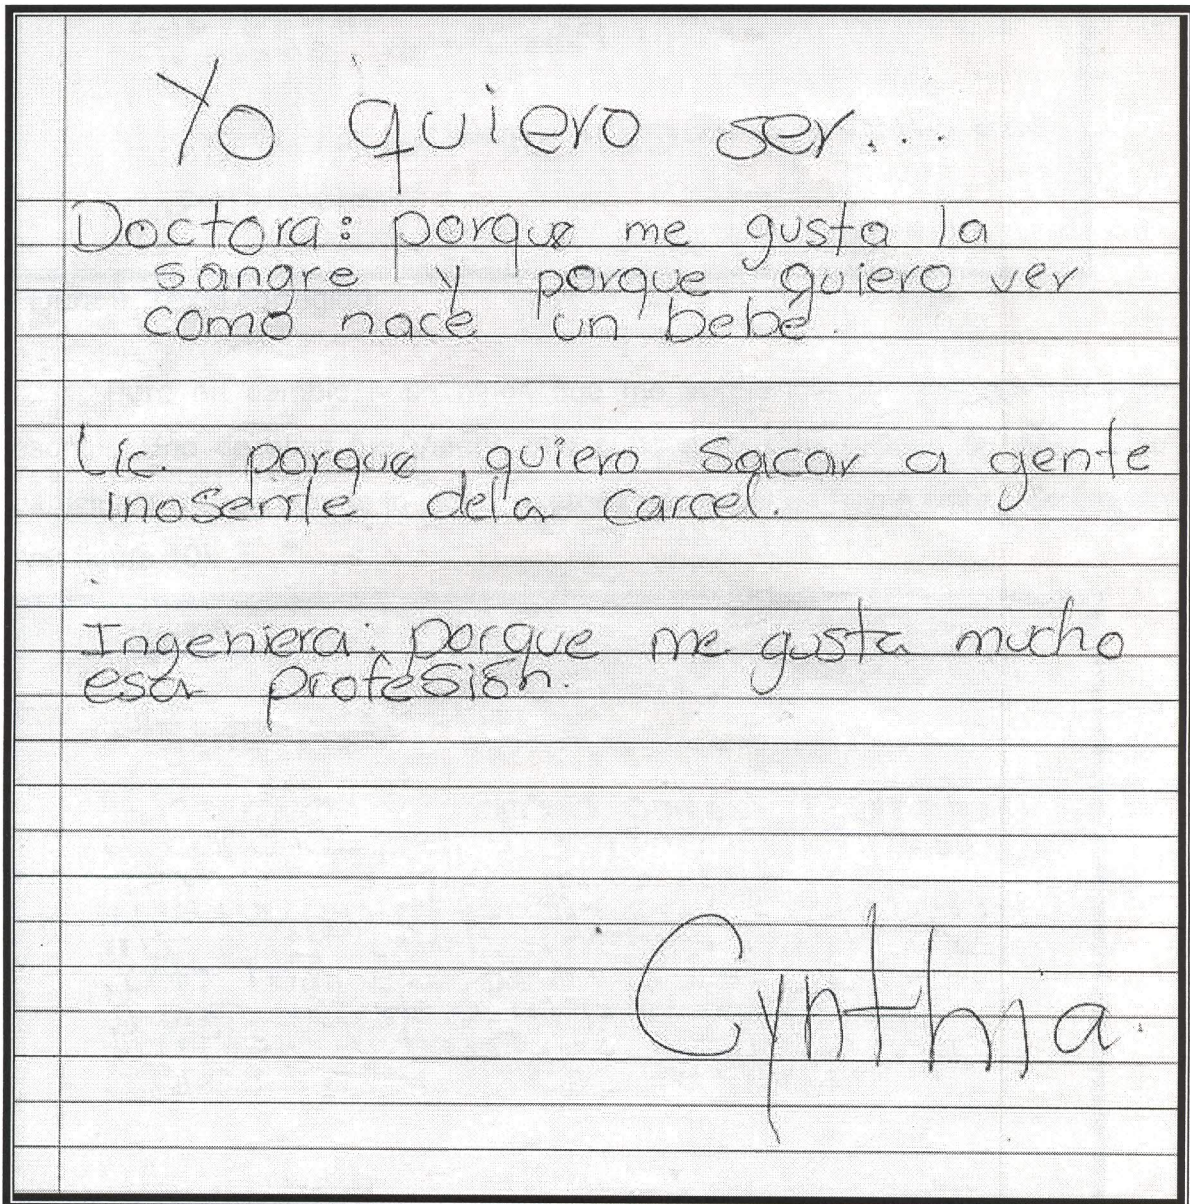 Yo quiero ser...
Doctora: porque me gusta la
sangre y porque quiero ver
como nace un bebé.
Lic. porque quiero sacar a gente
inosente dela carcel.
Ingeniera: porque me gusta mucho
esa profesión.
Cynthia.